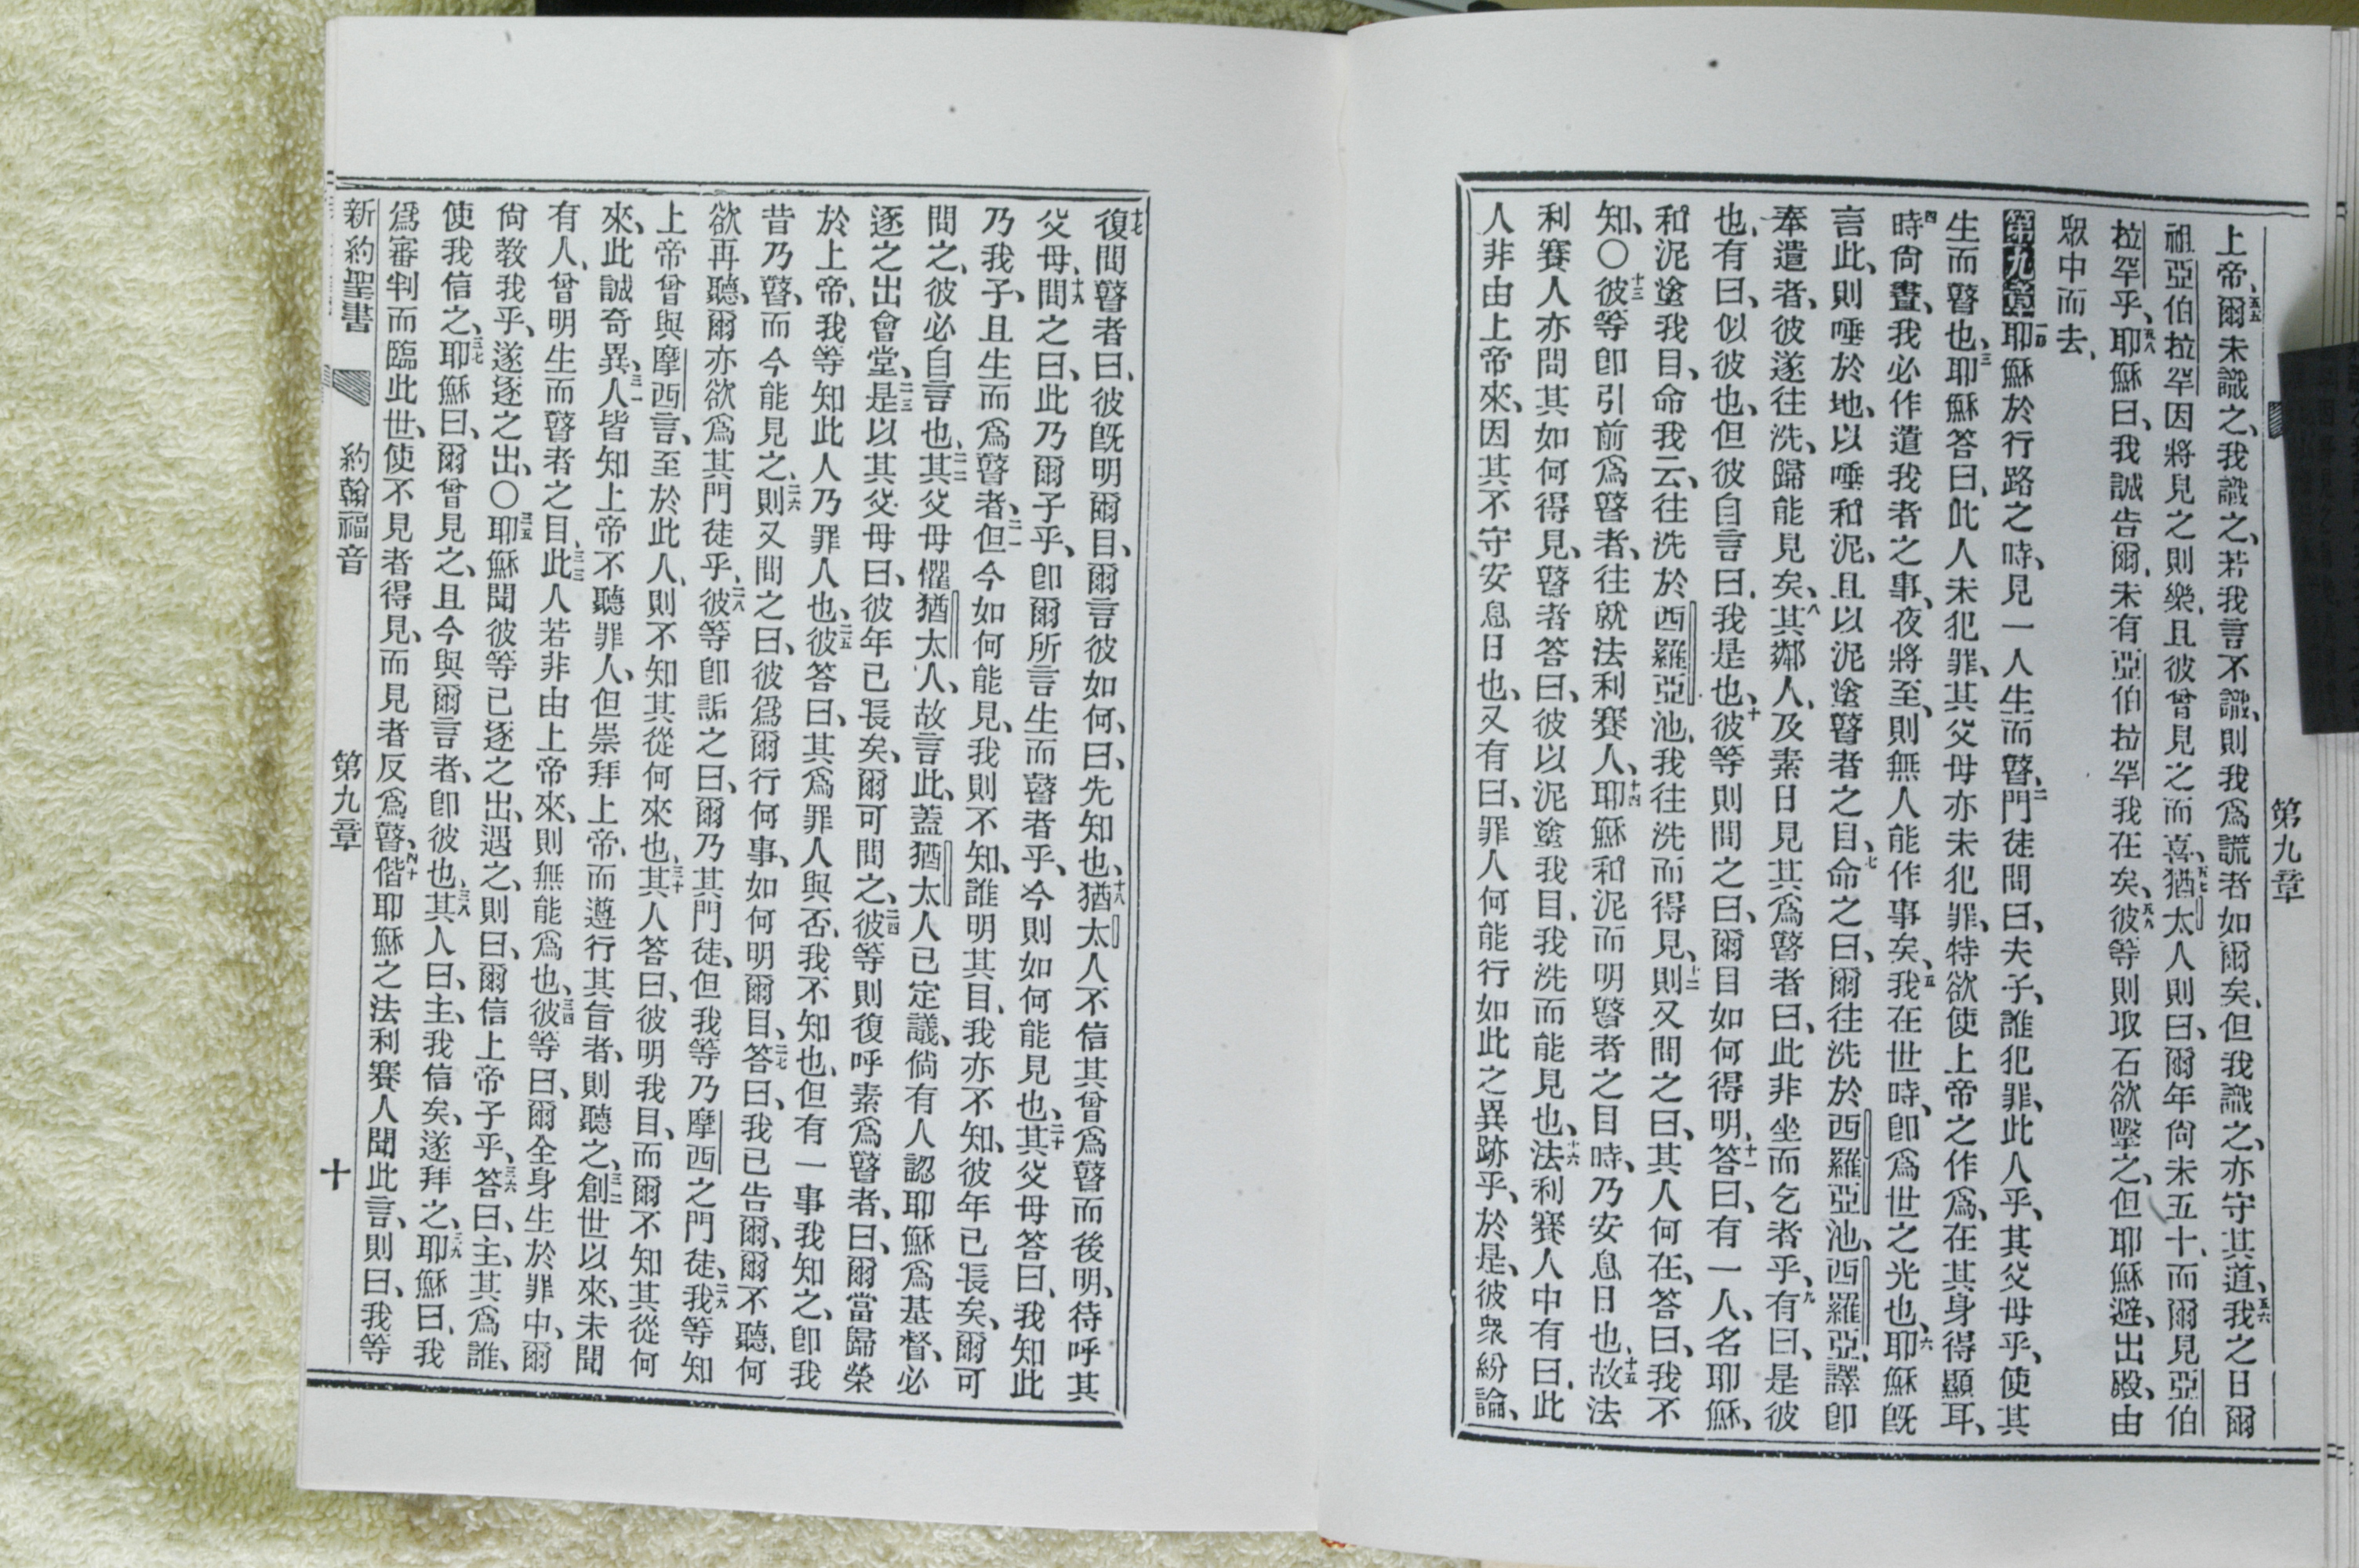 第九章
上帝、五五爾未識之、我識之、若我言不識、則我爲謊者如爾矣、但我識之、亦守其道、五六我之日爾
祖亞伯拉罕因將見之則樂、且彼曾見之而喜、五七猶太人則曰、爾年尙未五十、而爾見亞伯
拉罕乎、五八耶穌曰、我誠告爾、未有亞伯拉罕我在矣、五九彼等則取石欲擊之、但耶穌避、出殿、由
眾中而去、
第九章一節耶穌於行路之時、見一人生而瞽、二門徒問曰、夫子、誰犯罪、此人乎、其父母乎、使其
生而瞽也、三耶穌答曰、此人未犯罪、其父母亦未犯罪、特欲使上帝之作爲、在其身得顯耳、
四時尙晝、我必作遣我者之事、夜將至、則無人能作事矣、五我在世時、卽爲世之光也、六耶穌旣
言此、則唾於地、以唾和泥、且以泥塗瞽者之目、七命之曰、爾往洗於西羅亞池、西羅亞、譯卽
奉遣者、彼遂往洗、歸能見矣、八其鄰人、及素日見其爲瞽者曰、此非坐而乞者乎、九有曰、是彼
也、有曰、似彼也、但彼自言曰、我是也、十彼等則問之曰、爾目如何得明、十一答曰、有一人、名耶穌、
和泥塗我目、命我云、往洗於西羅亞池、我往洗而得見、十二則又問之曰、其人何在、答曰、我不
知、〇十三彼等卽引前爲瞽者、往就法利賽人、十四耶穌和泥而明瞽者之目時、乃安息日也、十五故法
利賽人亦問其如何得見、瞽者答曰、彼以泥塗我目、我洗而能見也、十六法利賽人中有曰、此
人非由上帝來、因其不守安息日也、又有曰、罪人何能行如此之異跡乎、於是、彼眾紛論、
十七復問瞽者曰、彼旣明爾目、爾言彼如何、曰、先知也、十八猶太人不信其曾爲瞽而後明、待呼其
父母、十九問之曰、此乃爾子乎、卽爾所言生而瞽者乎、今則如何能見也、二十其父母答曰、我知此
乃我子、且生而爲瞽者、二一但今如何能見、我則不知、誰明其目、我亦不知、彼年已長矣、爾可
問之、彼必自言也、二二其父母懼猶太人、故言此、蓋猶太人已定議、倘有人認耶穌爲基督、必
逐之出會堂、二三是以其父母曰、彼年已長矣、爾可問之、二四彼等則復呼素爲瞽者、曰、爾當歸榮
於上帝、我等知此人乃罪人也、二五彼答曰、其爲罪人與否、我不知也、但有一事我知之、卽我
昔乃瞽、而今能見之、二六則又問之曰、彼爲爾行何事、如何明爾目、二七答曰、我已告爾、爾不聽、何
欲再聽、爾亦欲爲其門徒乎、二八彼等卽詬之曰、爾乃其門徒、但我等乃摩西之門徒、二九我等知
上帝曾與摩西言、至於此人、則不知其從何來也、三十其人答曰、彼明我目、而爾不知其從何
來、此誠奇異、三一人皆知上帝不聽罪人、但崇拜上帝、而遵行其旨者、則聽之、三二創世以來、未聞
有人、曾明生而瞽者之目、三三此人若非由上帝來、則無能爲也、三四彼等曰、爾全身生於罪中、爾
尙教我乎、遂逐之出、〇三五耶穌聞彼等已逐之出、遇之、則曰、爾信上帝子乎、三六答曰、主、其爲誰、
使我信之、三七耶穌曰、爾曾見之、且今與爾言者、卽彼也、三八其人曰、主、我信矣、遂拜之、三九耶穌曰、我
爲審判而臨此世、使不見者得見、而見者反爲瞽、四十偕耶穌之法利賽人聞此言、則曰、我等
新約聖書 約翰福音 第九章 十